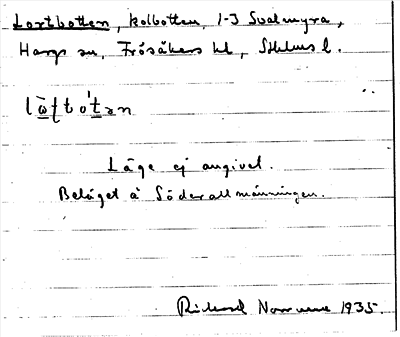 Lortbotten, kolbotten, 1-3 Svalmyra,
Hargs sn, Frösåkers hd, Sthlms l.
Läge ej angivet.
Beläget å Söderallmänningen.
Rickard 1935.